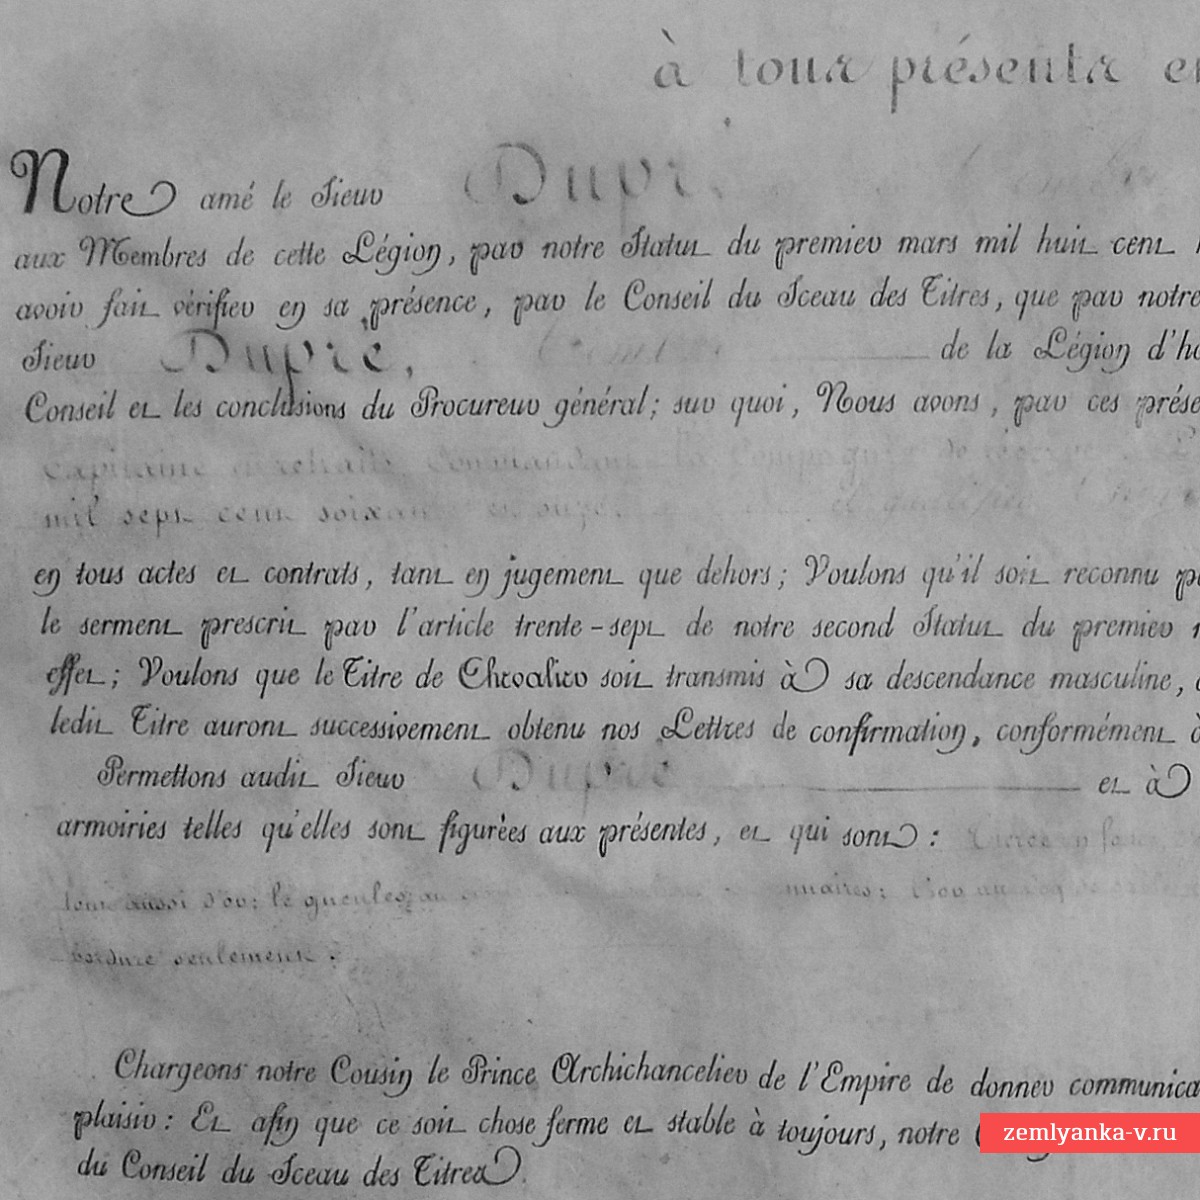 à tous présents et
Notre amé le Sieur Dupré
aux Membres de cette Légion, par notre Statut du premier mars mil huit cent
avoir fait vérifier en sa présence, par le Conseil du Sceau des Titres, que par notre
Sieur Dupré, de la Légion d'ho
Conseil et les conclusions du Procureur général; sur quoi, Nous avons, par ces prése
Capitaine en retraite Commandant la Compagnie de réserve
mil sept cent soixante et qualifier
en tous actes et contrats, tant en jugement que dehors; Voulons qu'il soit reconnu p
le serment prescrit par l'article trente-sept de notre second Statut du premier
effet; Voulons que le Titre de Chevalier soit transmis à sa descendance masculine,
ledit Titre auront successivement obtenu nos Lettres de confirmation, conformément à
Permettons audit Sieur Dupré et à
armoiries telles qu'elles sont figurées aux présentes, et qui sont :
aussi d'or; le gueules au
bordure seulement :
Chargeons notre Cousin le Prince Archichancelier de l'Empire de donner communica
plaisir : Et afin que ce soit chose ferme et stable à toujours, notre
du Conseil du Sceau des Titres.
zemlyanka-v.ru